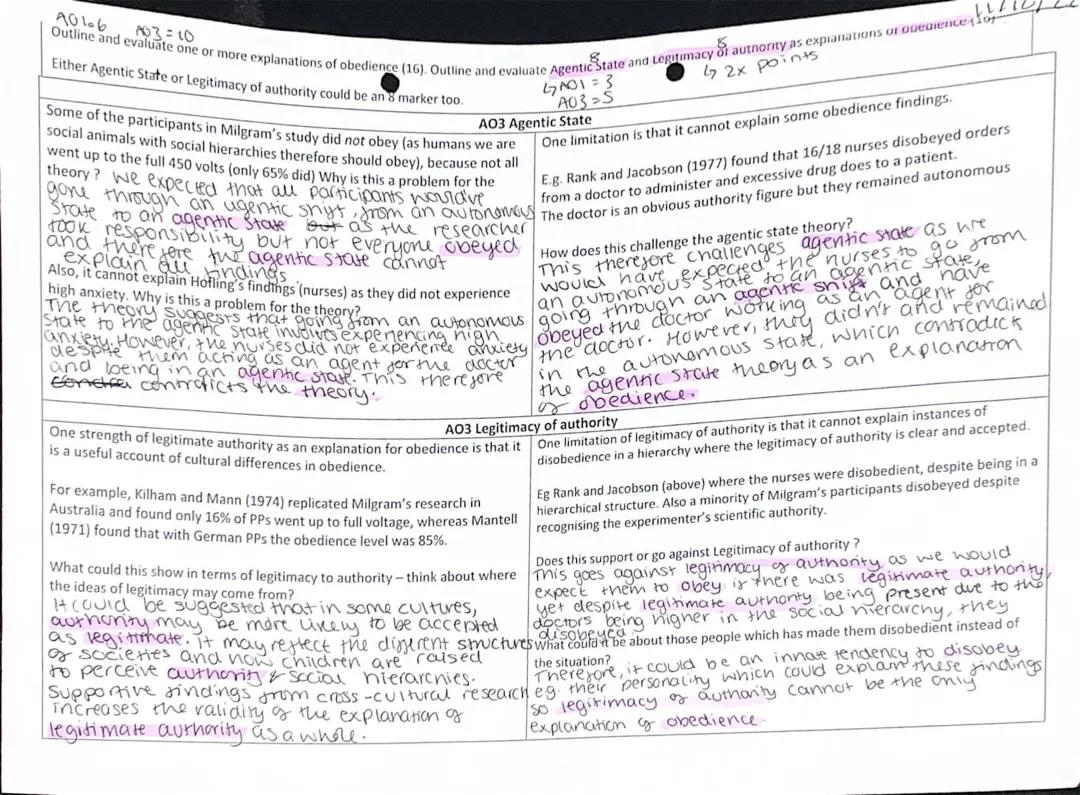 AO1=6 AO3=10
Outline and evaluate one or more explanations of obedience (16). Outline and evaluate Agentic State and Legitimacy of authority as explanations of obedience (16)
8 8
↳ AO1 = 3 ↳ 2x points
AO3 = 5
Either Agentic State or Legitimacy of authority could be an 8 marker too.
AO3 Agentic State
Some of the participants in Milgram's study did not obey (as humans we are
social animals with social hierarchies therefore should obey), because not all
went up to the full 450 volts (only 65% did) Why is this a problem for the
theory? We expected that all participants would've
gone through an agentic shift, from an autonomous
state to an agentic state but as the researcher
took responsibility but not everyone obeyed
and therefore the agentic state cannot
explain all findings
Also, it cannot explain Hofling's findings (nurses) as they did not experience
high anxiety. Why is this a problem for the theory?
The theory suggests that going from an autonomous
state to the agentic state involves experiencing high
anxiety. However, the nurses did not experience anxiety
despite them acting as an agent for the doctor
and being in an agentic state. This therefore
contradicts the theory.
One limitation is that it cannot explain some obedience findings.
E.g. Rank and Jacobson (1977) found that 16/18 nurses disobeyed orders
from a doctor to administer and excessive drug does to a patient.
The doctor is an obvious authority figure but they remained autonomous
How does this challenge the agentic state theory?
This therefore challenges agentic state as we
would have expected the nurses to go from
an autonomous state to an agentic state,
going through an agentic shift and have
obeyed the doctor working as an agent for
the doctor. However, they didn't and remained
in the autonomous state, which contradicts
the agentic state theory as an explanation
of obedience.
AO3 Legitimacy of authority
One strength of legitimate authority as an explanation for obedience is that it
is a useful account of cultural differences in obedience.
For example, Kilham and Mann (1974) replicated Milgram's research in
Australia and found only 16% of PPs went up to full voltage, whereas Mantell
(1971) found that with German PPs the obedience level was 85%.
What could this show in terms of legitimacy to authority – think about where
the ideas of legitimacy may come from?
It could be suggested that in some cultures,
authority may be more likely to be accepted
as legitimate. It may reflect the different structures
of societies and how children are raised
to perceive authority & social hierarchies.
Supportive findings from cross-cultural research
increases the validity of the explanation of
legitimate authority as a whole.
One limitation of legitimacy of authority is that it cannot explain instances of
disobedience in a hierarchy where the legitimacy of authority is clear and accepted.
Eg Rank and Jacobson (above) where the nurses were disobedient, despite being in a
hierarchical structure. Also a minority of Milgram's participants disobeyed despite
recognising the experimenter's scientific authority.
Does this support or go against Legitimacy of authority ?
This goes against legitimacy of authority as we would
expect them to obey if there was legitimate authority,
yet despite legitimate authority being present due to the
doctors being higher in the social hierarchy, they
disobeyed.
What could it be about those people which has made them disobedient instead of
the situation?
Therefore, it could be an innate tendency to disobey
eg. their personality which could explain these findings
so legitimacy of authority cannot be the only
explanation of obedience.